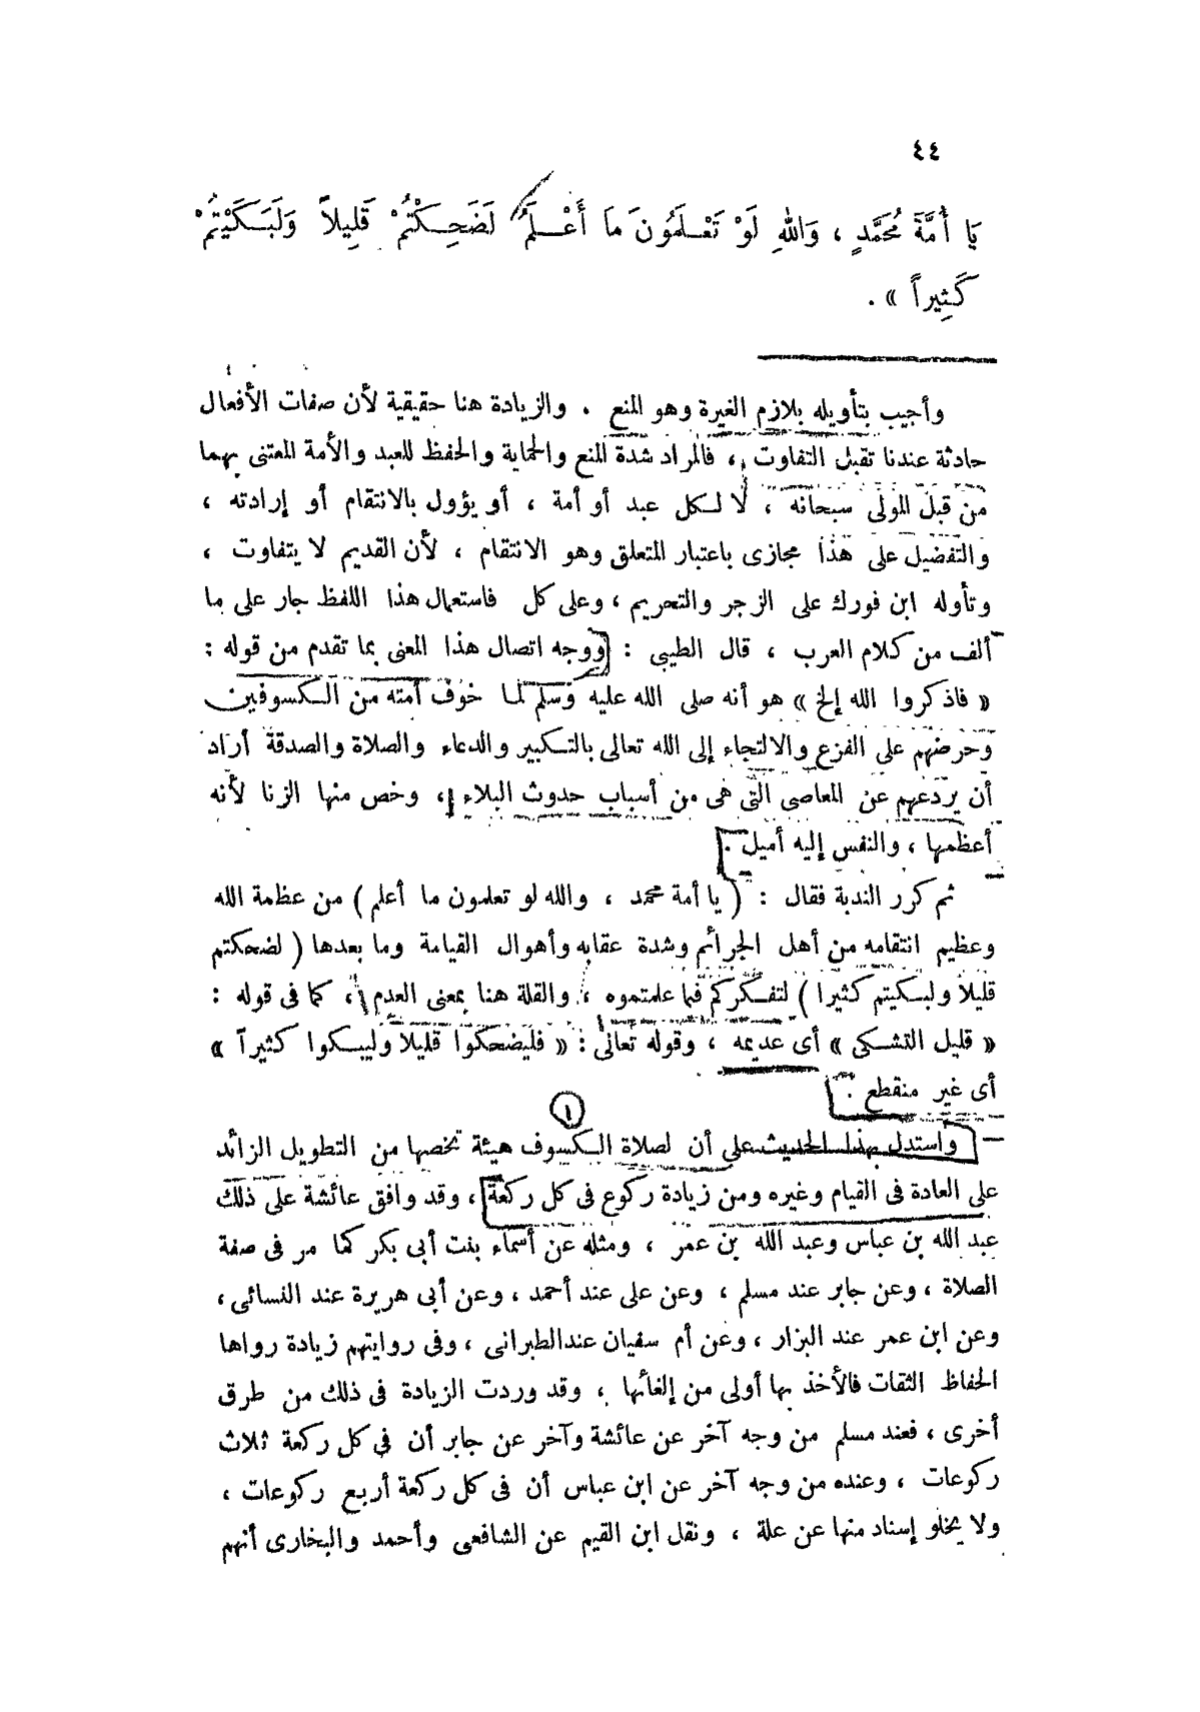 ٤٤
يَا أُمَّةَ مُحَمَّدٍ ، وَاللهِ لَوْ تَعْلَمُونَ مَا أَعْلَمُ لَضَحِكْتُمْ قَلِيلاً وَلَبَكَيْتُمْ
كَثِيراً » .
وأجيب بتأويله بلازم الغيرة وهو المنع . والزيادة هنا حقيقية لأن صفات الأفعال
حادثة عندنا تقبل التفاوت ، فالمراد شدة المنع والحماية والحفظ للعبد والأمة المعتنى بهما
من قبل المولى سبحانه ، لا لكل عبد أو أمة ، أو يؤول بالانتقام أو إرادته ،
والتفضيل على هذا مجازى باعتبار المتعلق وهو الانتقام ، لأن القديم لا يتفاوت ،
وتأوله ابن فورك على الزجر والتحريم ، وعلى كل فاستعمال هذا اللفظ جار على ما
ألف من كلام العرب ، قال الطيبى : ووجه اتصال هذا المعنى بما تقدم من قوله :
« فاذكروا الله إلخ » هو أنه صلى الله عليه وسلم لما خوف أمته من الكسوفين
وحرضهم على الفزع والالتجاء إلى الله تعالى بالتكبير والدعاء والصلاة والصدقة أراد
أن يردعهم عن المعاصى التى هى من أسباب حدوث البلاء ، وخص منها الزنا لأنه
أعظمها ، والنفس إليه أميل .
ثم كرر الندبة فقال : ( يا أمة محمد ، والله لو تعلمون ما أعلم ) من عظمة الله
وعظيم انتقامه من أهل الجرائم وشدة عقابه وأهوال القيامة وما بعدها ( لضحكتم
قليلا ولبكيتم كثيرا ) لتفكركم فيما علمتموه ، والقلة هنا بمعنى العدم ، كما فى قوله :
« قليل التشكى » أى عديمه ، وقوله تعالى : « فليضحكوا قليلا وليبكوا كثيراً »
أى غير منقطع .
١
واستدل بهذا الحديث على أن لصلاة الكسوف هيئة تخصها من التطويل الزائد
على العادة فى القيام وغيره ومن زيادة ركوع فى كل ركعة ، وقد وافق عائشة على ذلك
عبد الله بن عباس وعبد الله بن عمر ، ومثله عن أسماء بنت أبى بكر كما مر فى صفة
الصلاة ، وعن جابر عند مسلم ، وعن على عند أحمد ، وعن أبى هريرة عند النسائى ،
وعن ابن عمر عند البزار ، وعن أم سفيان عند الطبرانى ، وفى روايتهم زيادة رواها
الحفاظ الثقات فالأخذ بها أولى من إلغائها ، وقد وردت الزيادة فى ذلك من طرق
أخرى ، فعند مسلم من وجه آخر عن عائشة وآخر عن جابر أن فى كل ركعة ثلاث
ركوعات ، وعنده من وجه آخر عن ابن عباس أن فى كل ركعة أربع ركوعات ،
ولا يخلو إسناد منها عن علة ، ونقل ابن القيم عن الشافعى وأحمد والبخارى أنهم